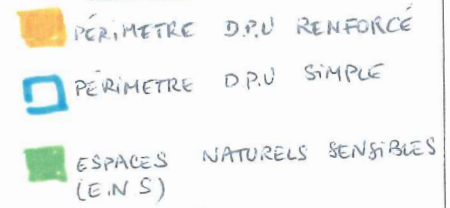 PÉRIMETRE D.P.U RENFORCÉ
PÉRIMETRE D.P.U SIMPLE
ESPACES NATURELS SENSIBLES
(E.N S)